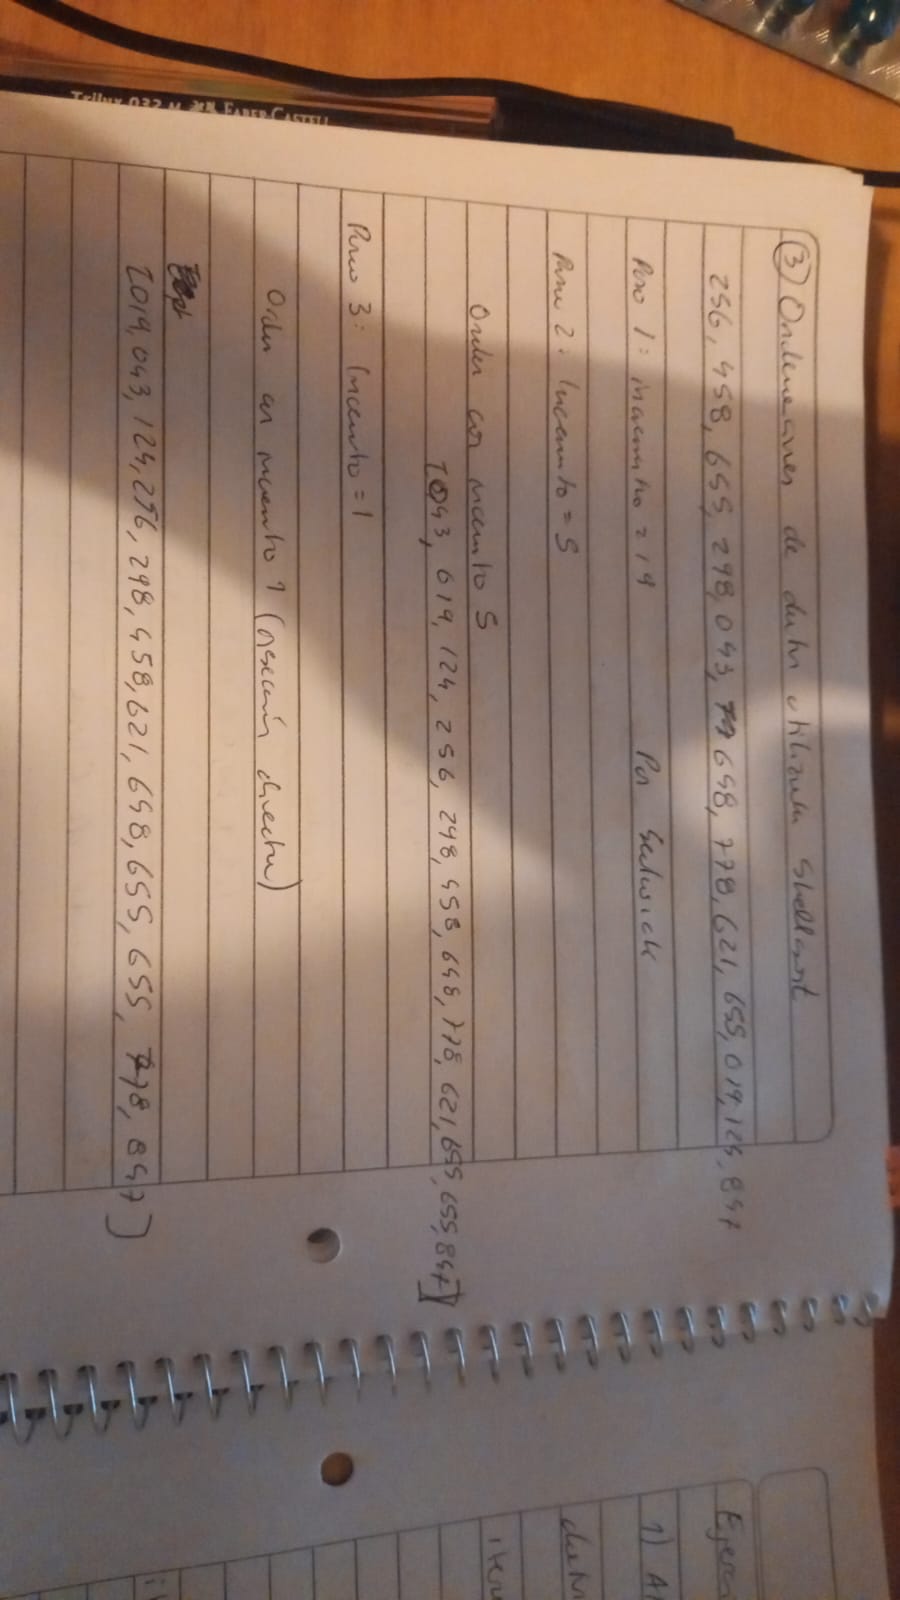 Trilux 032 M FABER-CASTELL
③ Ordenaciones de datos utilizando Shellsort
256, 458, 655, 298, 043, 648, 778, 621, 655, 019, 124, 847
Paso 1: incremento = 19 Por Sedwick
Paso 2: Incremento = 5
Orden con incremento 5
[043, 019, 124, 256, 298, 458, 648, 778, 621, 655, 655, 847]
Paso 3: Incremento = 1
Orden con incremento 1 (inserción directa)
[019, 043, 124, 256, 298, 458, 621, 648, 655, 655, 778, 847]
Ejerci
1) Al